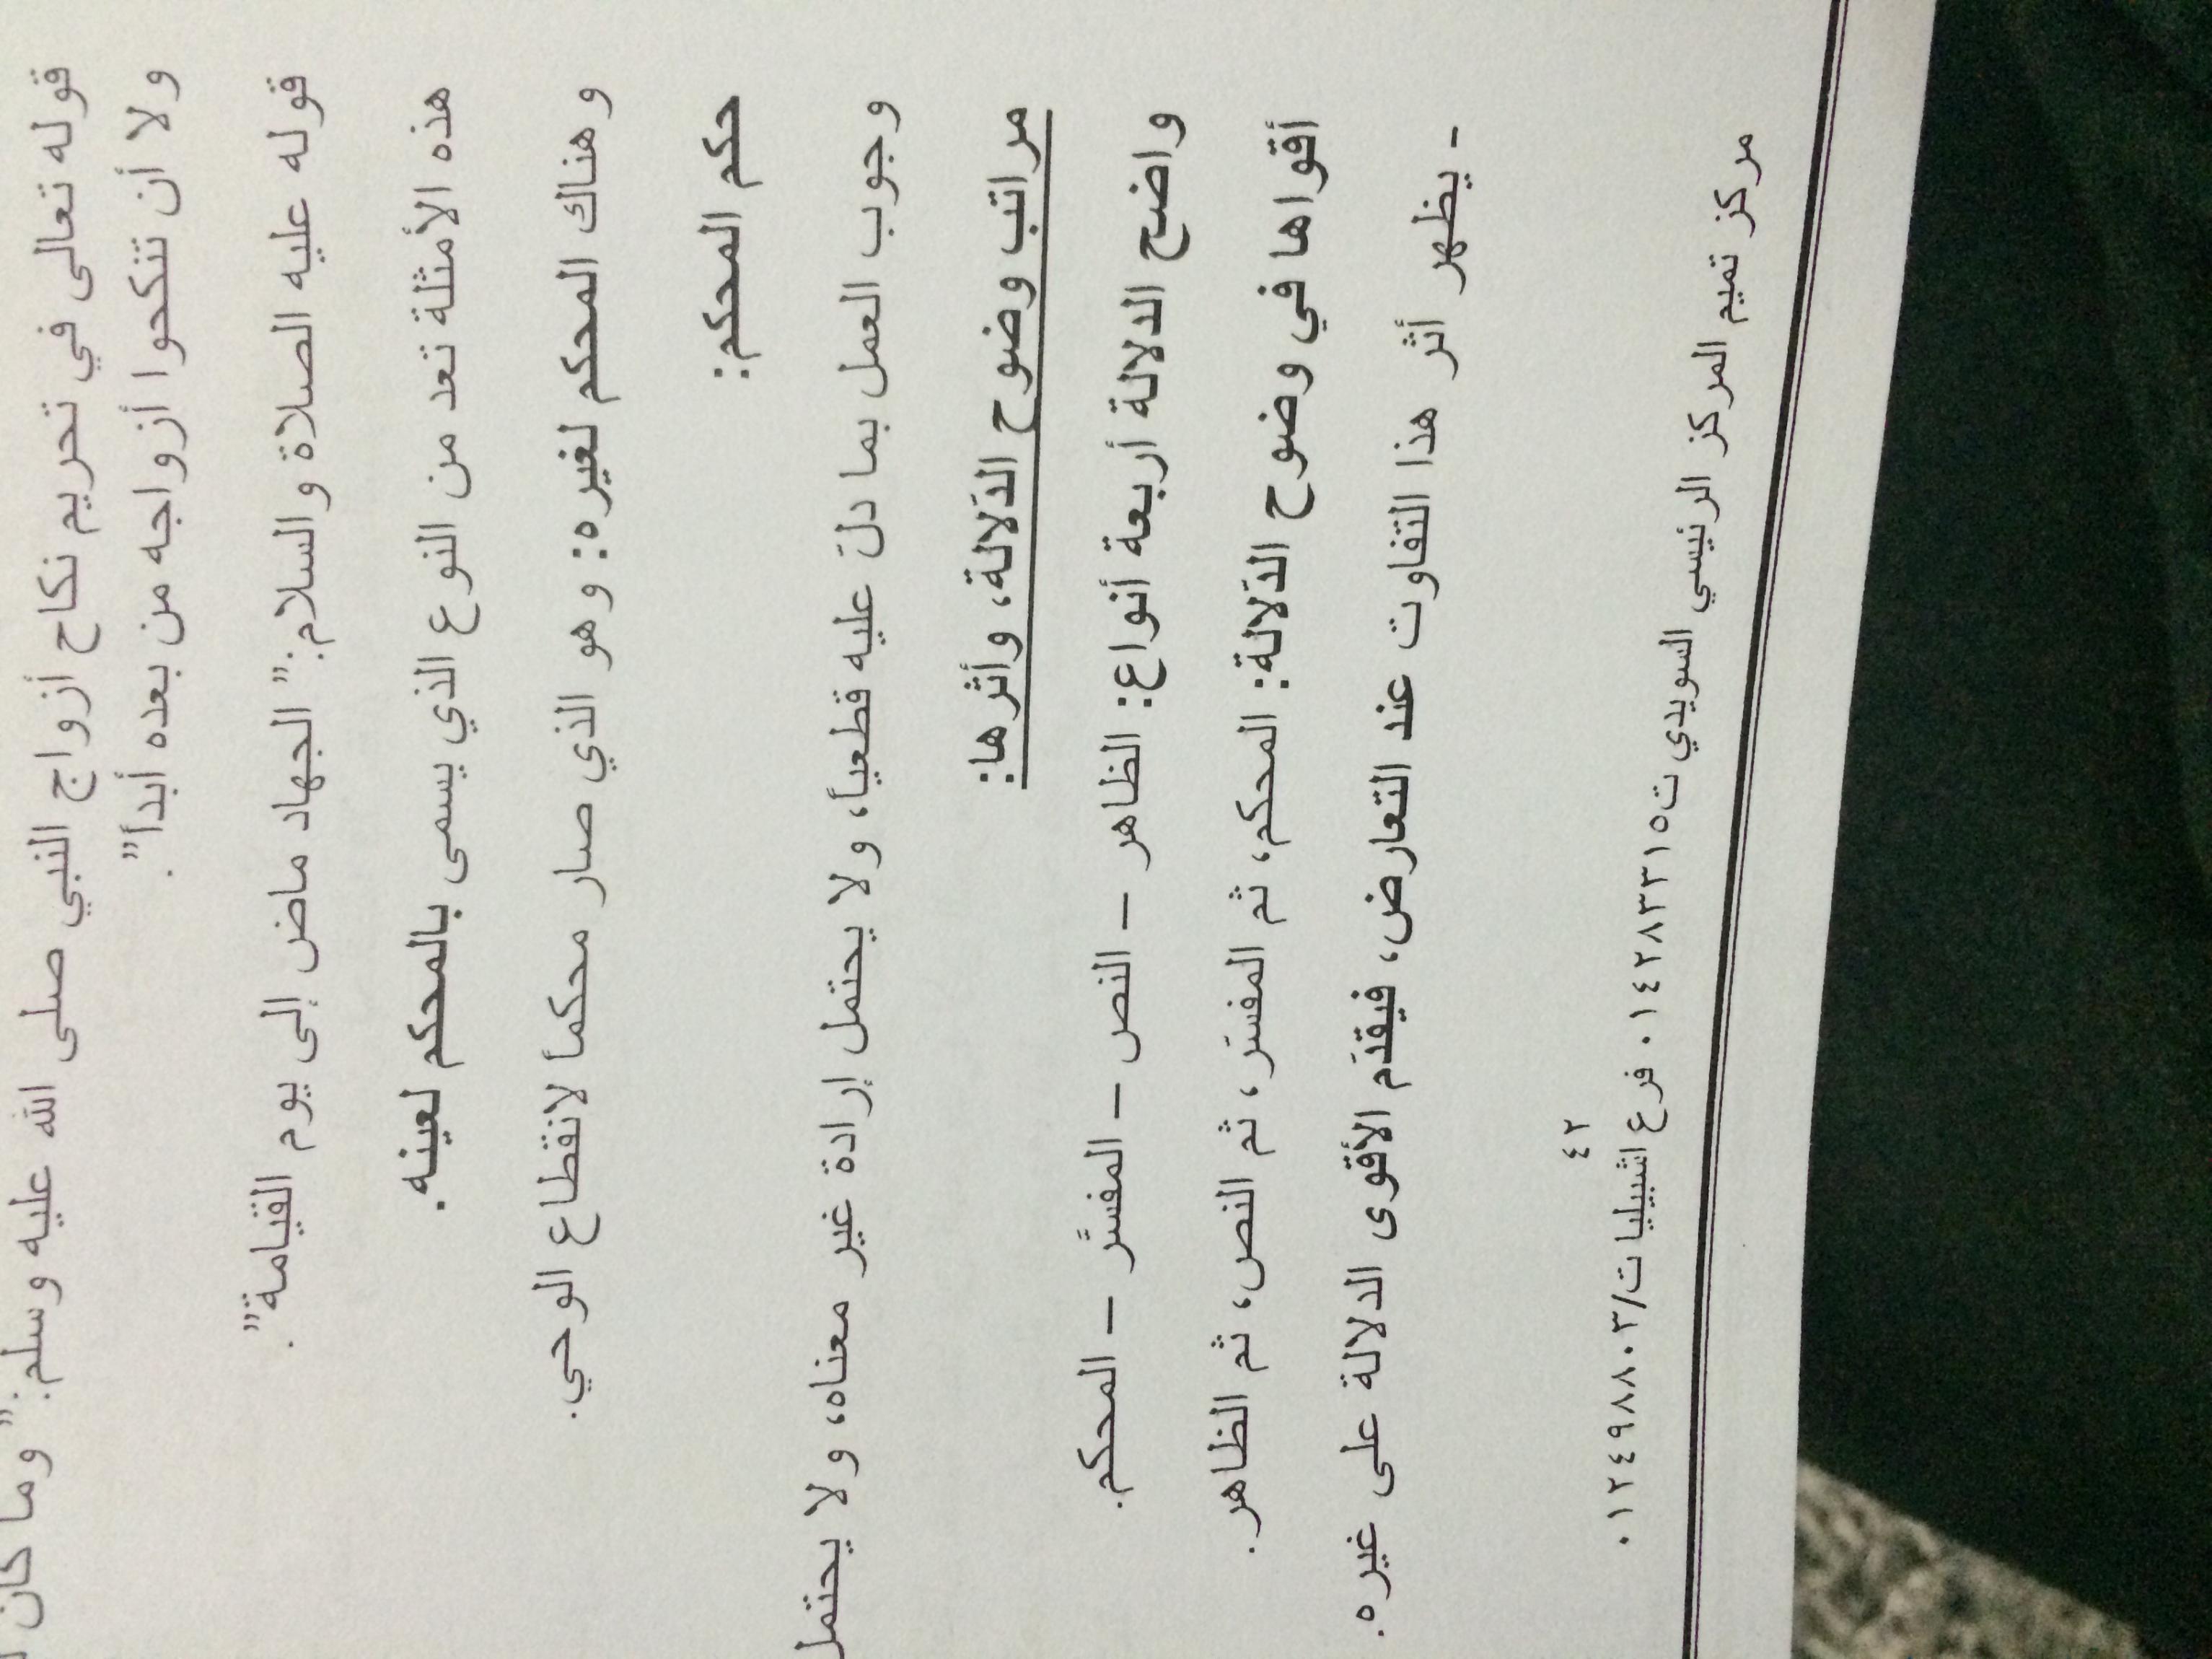 قوله تعالى في تحريم نكاح أزواج النبي صلى الله عليه وسلم:" وما كان
ولا أن تنكحوا أزواجه من بعده أبدا".
قوله عليه الصلاة والسلام:" الجهاد ماض إلى يوم القيامة".
هذه الأمثلة تعد من النوع الذي يسمى بالمحكم لعينه.
وهناك المحكم لغيره: وهو الذي صار محكماً لانقطاع الوحي.
حكم المحكم:
وجوب العمل بما دلّ عليه قطعياً، ولا يحتمل إرادة غير معناه، ولا يحتمل
مراتب وضوح الدّلالة، وأثرها:
واضح الدلالة أربعة أنواع: الظاهر – النص – المفسَّر – المحكم.
أقواها في وضوح الدّلالة: المحكم، ثم المفسّر، ثم النص، ثم الظاهر.
- يظهر أثر هذا التفاوت عند التعارض، فيقدّم الأقوى الدلالة على غيره.
٤٢
مركز تميم المركز الرئيسي السويدي ت٠١٤٢٨٣٣١٥ فرع اشبيليات/٠١٢٤٩٨٨٠٣